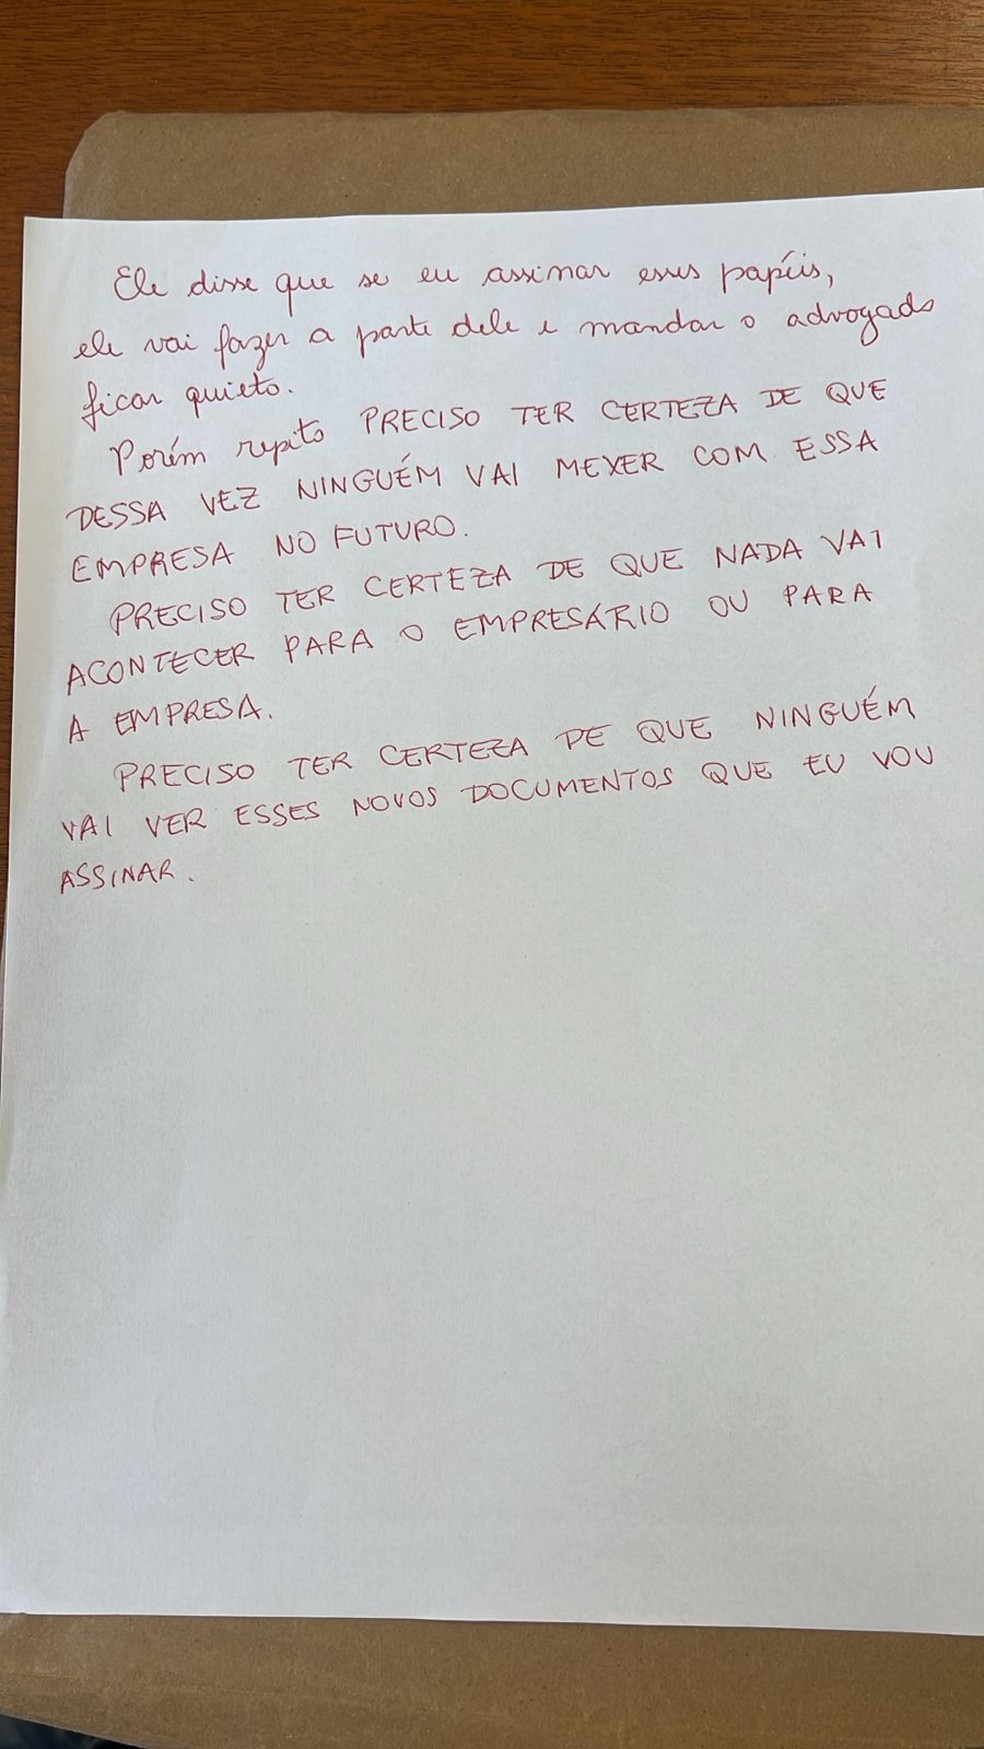 Ele disse que se eu assinar esses papéis,
ele vai fazer a parte dele e mandar o advogado
ficar quieto.
Porém repito PRECISO TER CERTEZA DE QUE
DESSA VEZ NINGUÉM VAI MEXER COM ESSA
EMPRESA NO FUTURO.
PRECISO TER CERTEZA DE QUE NADA VAI
ACONTECER PARA O EMPRESÁRIO OU PARA
A EMPRESA.
PRECISO TER CERTEZA DE QUE NINGUÉM
VAI VER ESSES NOVOS DOCUMENTOS QUE EU VOU
ASSINAR.